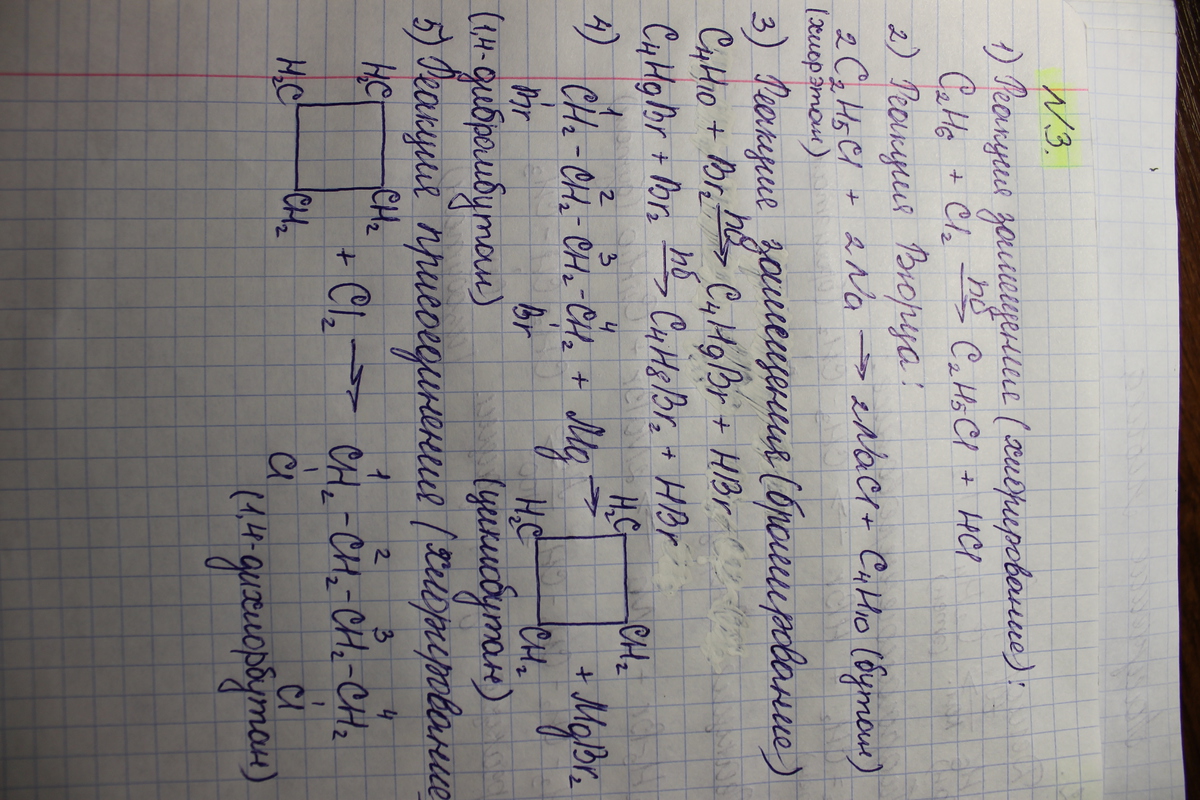 N3.
1) Реакция замещение (хлорирование):
C₂H₆ + Cl₂ hδ→ C₂H₅Cl + HCl
2) Реакция Вюрца:
2C₂H₅Cl + 2Na → 2NaCl + C₄H₁₀ (бутан)
(хлорэтан)
3) Реакция замещения (бромирование)
C₄H₁₀ + Br₂ hδ→ C₄H₉Br + HBr
C₄H₉Br + Br₂ hδ→ C₄H₈Br₂ + HBr
1 2 3 4 H₂C CH₂
4) CH₂ - CH₂ - CH₂ - CH₂ + Mg → + MgBr₂
Br Br H₂C CH₂
(1,4-дибромбутан) (циклобутан)
5) Реакция присоединения (хлорирование
H₂C CH₂ 1 2 3 4
+ Cl₂ → CH₂ - CH₂ - CH₂ - CH₂
H₂C CH₂ Cl Cl
(1,4-дихлорбутан)